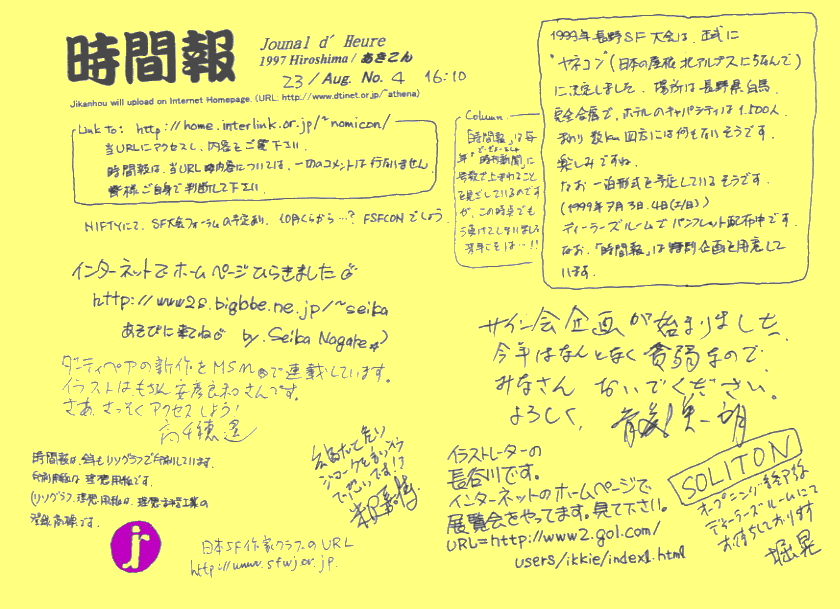 時間報
Jounal d' Heure
1997 Hiroshima / あきこん
23 / Aug. No. 4 16:10
Jikanhou will upload on Internet Homepage. (URL: http://www.dtinet.or.jp/~athena)
Link to: http://home.interlink.or.jp/~nomicon/
当URLにアクセスし、内容をご覧下さい。
時間報は、当URLの内容については、一切のコメントは行ないません。
皆様ご自身で判断して下さい。
NIFTYにて、SF大会フォーラムの予定あり。10月くらいから…? FSFCONでしょう。
Column
「時間報」は毎
年"時刊新聞"に
号数で上まわること
を目ざしているのです
が、この時点でも
う負けてしまいました
来年こそは…!!
1999年長野SF大会は、正式に
"ヤネコン"(日本の屋根 北アルプスにちなんで)
に決定しました。場所は長野県白馬。
完全合宿で、ホテルのキャパシティは1,500人。
まわり数km四方には何もないそうです。
楽しみですね。
なお一泊形式を予定しているそうです。
(1999年7月3日.4日(土/日))
ディーラーズルームでパンフレット配布中です。
なお、「時間報」は特別企画を用意して
います。
インターネットでホームページひらきました
http://www2s.biglobe.ne.jp/~seika
あそびに来てね by. Seika Nagare
ダーティペアの新作をMSNで連載しています。
イラストはもちろん安彦良和さんです。
さあ、さっそくアクセスしよう!
高千穂遙
サイン会企画が始まりました。
今年はなんとなく貧弱なので
みなさん おいでください。
よろしく。
時間報は、今年もリソグラフで印刷しています。
印刷用紙は理想用紙です。
(リソグラフ、理想用紙は、理想科学工業の
登録商標です。
j
日本SF作家クラブのURL
http://www.sfwj.or.jp.
イラストレーターの
長谷川です。
インターネットのホームページで
展覧会をやってます。見て下さい。
URL=http://www2.gol.com/
users/ikkie/index1.html
SOLITON
オープニング・終了後
ディーラーズルームにて
お待ちしております
堀晃